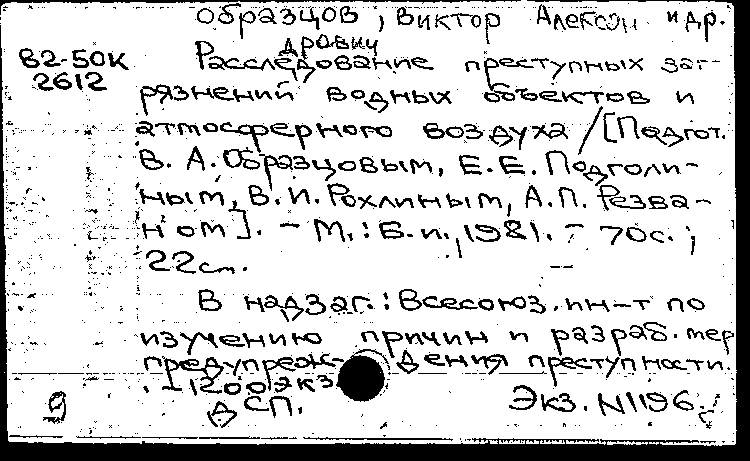 Образцов, Виктор Алексан и др.
дрович
В2-50К
2612
Расследование преступных заг-
рязнений водных объектов и
атмосферного воздуха / [Подгот.
В. А. Образцовым, Е. Е. Подголи-
ным, В. И. Рохлиным, А. П. Резва-
н ом]. - М.: Б. и., 1981. - 70с.;
22см.
В надзаг.: Всесоюз. ин-т по
изучению причин и разраб. мер
предупреж- дения преступности.
. - 1200экз.
9
ДСП.
Экз. N1196.